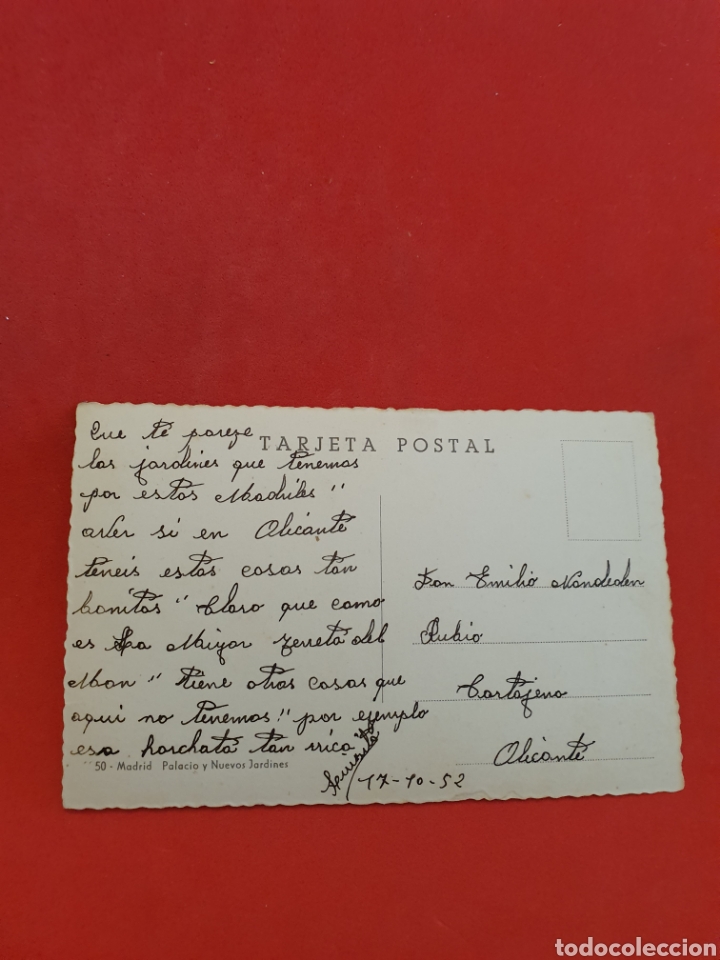 Que te pareze
TARJETA POSTAL
los jardines que tenemos
por estos Madriles"
aver si en Alicante
teneis estas cosas tan
bonitas" Claro que como
es La Maiyor Terreta del
Mon" tiene otras cosas que
aqui no tenemos!" por ejemplo
esa horchata tan rrica
17-10-52
50 - Madrid Palacio y Nuevos Jardines
Don Emilio
Rubio
Cartajena
Alicante
todocoleccion